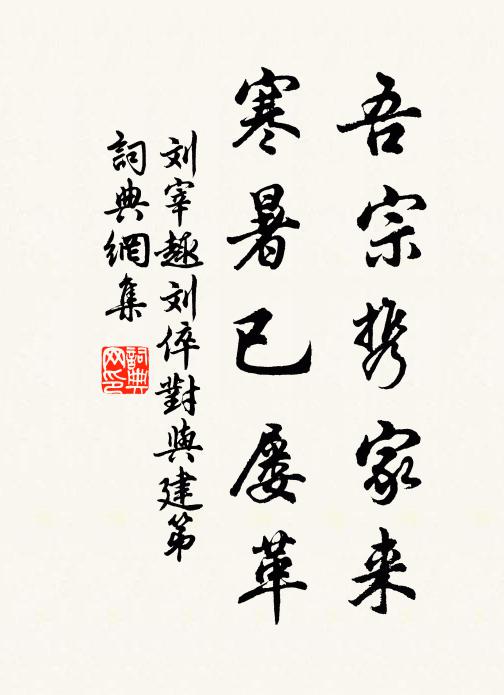 吾宗携家来
寒暑已屡革
刘宰趣刘倅對與建第
詞典網集
詞典网印